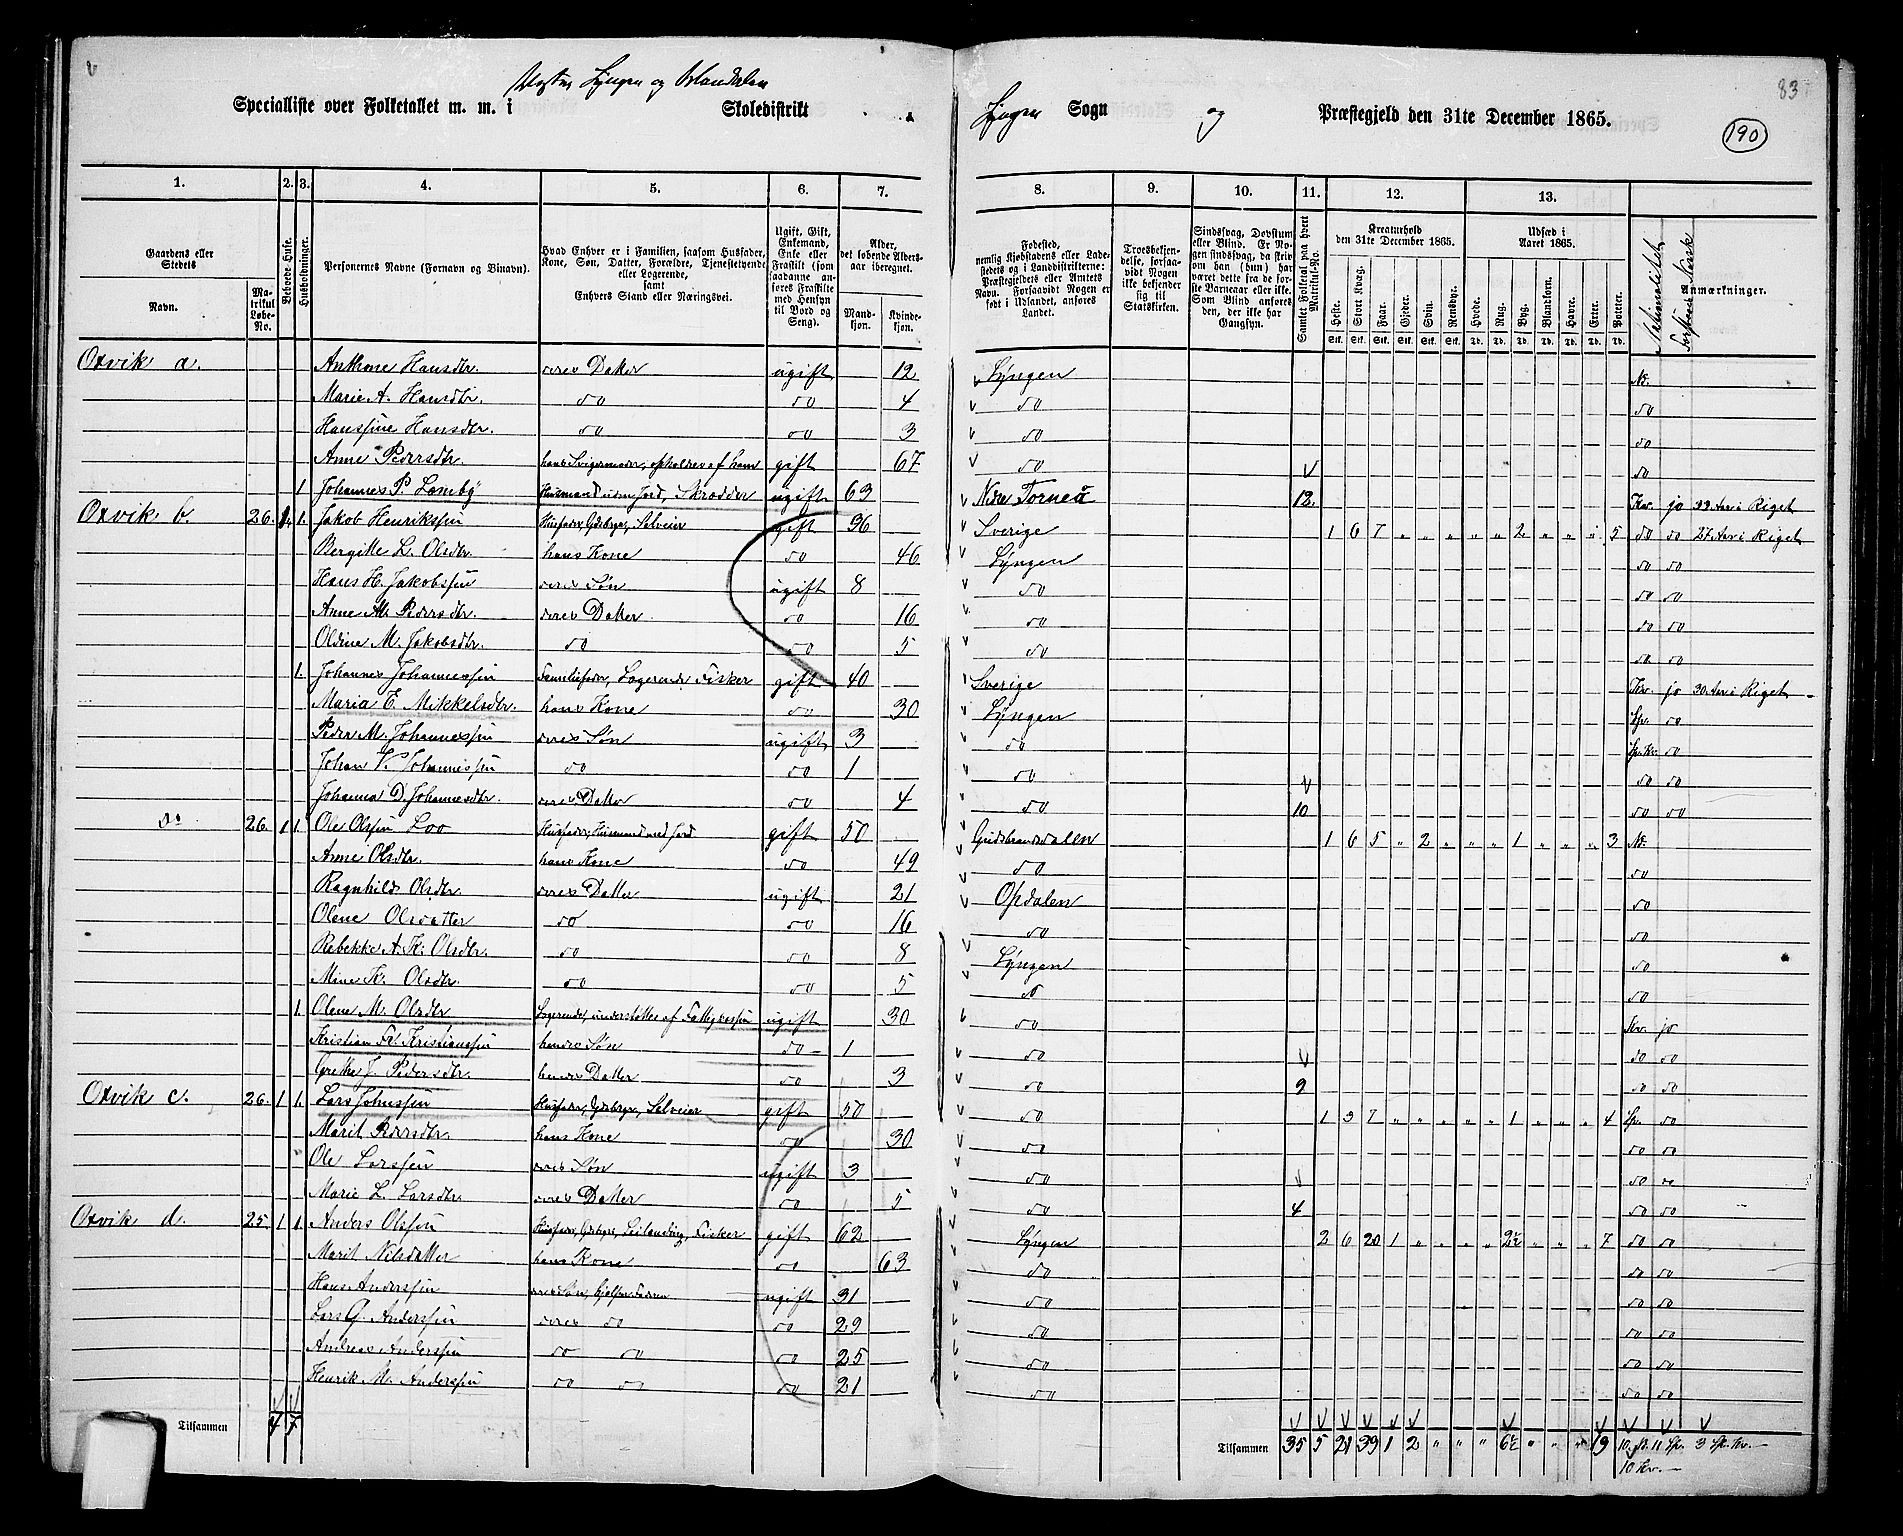 83
Lyngen og
190
Specialliste over Folketallet m. m. i Skoledistrikt
Lyngen Sogn og Præstegjeld den 31te December 1865.
1. 2. 3. 4. 5. 6. 7. 8. 9. 10. 11. 12. 13.
Gaardens eller Stedets
Navn.
Matrikul Løbe-No.
Beboede Huse.
Husholdninger.
Personernes Navne (Fornavn og Binavn).
Hvad Enhver er i Familien, saasom Husfader, Kone, Søn, Datter, Forældre, Tjenestetyende eller Logerende, samt Enhvers Stand eller Næringsvei.
Ugift, Gift, Enkemand, Enke eller Frastilt (som saadanne anføres Fraskilte med Hensyn til Bord og Seng).
Alder, det løbende Aldersaar iberegnet.
Mandkjøn.
Kvindekjøn.
Fødested,
Troesbekjendelse, forsaavidt Nogen ikke bekjender sig til Statskirken.
Samlet Folketal paa hvert Matrikul-No.
Kreaturhold den 31te December 1865.
Heste. Stort Kvæg. Faar. Gjeder. Svin. Rensdyr.
Udsæd i Aaret 1865.
Hvede. Rug. Byg. Blandkorn. Havre. Erter. Poteter.
Nationalitet
Anmærkninger.
Oxvik a. Anthone Hansdtr. deres Datter ugift 12 Lyngen N.
Marie A. Hansdtr. do do 4 do do
Hansine Hansdtr. do do 3 do do
Anne Pedersdtr. gift 67 do do
1 Johannes P. Lomby Husmand uden Jord, Skrædder ugift 63 Nedre Torneå 12. Kv. jo 33 Aar i Riget
Oxvik b. 26. 1 1. Jakob Henrikssen Husfader, Gdbrgr, Selveier gift 36 Sverige 1 6 7 „ „ „ „ „ 2 „ „ „ 5 do do 27 Aar i Riget
Bergitte L. Olsdtr. hans Kone do 46 Lyngen do do
Hans H. Jakobssen deres Søn ugift 8 do do do
Anne M. Pedersdtr. deres Datter do 16 do do do
Oldine M. Jakobsdtr. do do 5 do do do
1. Johannes Johannessen Familiefader, Logerende, Fisker gift 40 Sverige Kv. jo 30 Aar i Riget
Maria E. Mikkelsdtr. hans Kone do 30 Lyngen Lp. do
Peder M. Johannessen deres Søn ugift 3 do Lp. Kv. do
Johan V. Johannessen do do 1 do do do
Johanna D. Johannesdtr. deres Datter do 4 do 10 do do
do 26. 1 1. Ole Olssen Loo Husfader, Husmand med Jord gift 50 Gudsbrandsdalen 1 6 5 „ 2 „ „ „ 1 „ „ „ 3 N.
Anne Olsdtr. hans Kone do 49 do do
Ragnhild Olsdtr. deres Datter ugift 21 Opdalen do
Olene Olsdatter do do 16 do do
Rebekke A. K. Olsdtr. do do 8 Lyngen do
Mine K. Olsdtr. do do 5 do do
1. Olene M. Olsdtr Logerende, understøttes af Fattigkassen ugift 30 do Kv. jo
Kristian Fr. Kristianssen hendes Søn do 1 do do do
Grethe J. Pedersdtr. hendes Datter do 3 do 9 do do
Oxvik c. 26. 1 1. Lars Johnssen Husfader, Gdbrgr, Selveier gift 50 do 1 3 7 „ „ „ „ „ 1 „ „ „ 4 Lp. do
Marit Pedersdtr. hans Kone do 30 do do do
Ole Larssen deres Søn ugift 3 do do do
Marie L. Larsdtr. deres Datter do 5 do 4 do do
Oxvik d. 25. 1 1. Anders Olssen Husfader, Gdbrgr, Leilending, Fisker gift 62 Lyngen 2 6 20 1 „ „ „ „ 2½ „ „ „ 7 do do
Marit Nilsdatter hans Kone do 63 do do do
Hans Anderssen deres Søn, hjelper Faderen ugift 31 do do do
Lars G. Anderssen deres do do 29 do do do
Andreas Anderssen do do do 25 do do do
Henrik M. Anderssen do do do 21 do do do
Tilsammen 4 7
Tilsammen 35 5 21 39 1 2 „ „ „ 6½ „ „ „ 19 10 N. 11 Lp. 3 Lp. Kv.
10 Kv.